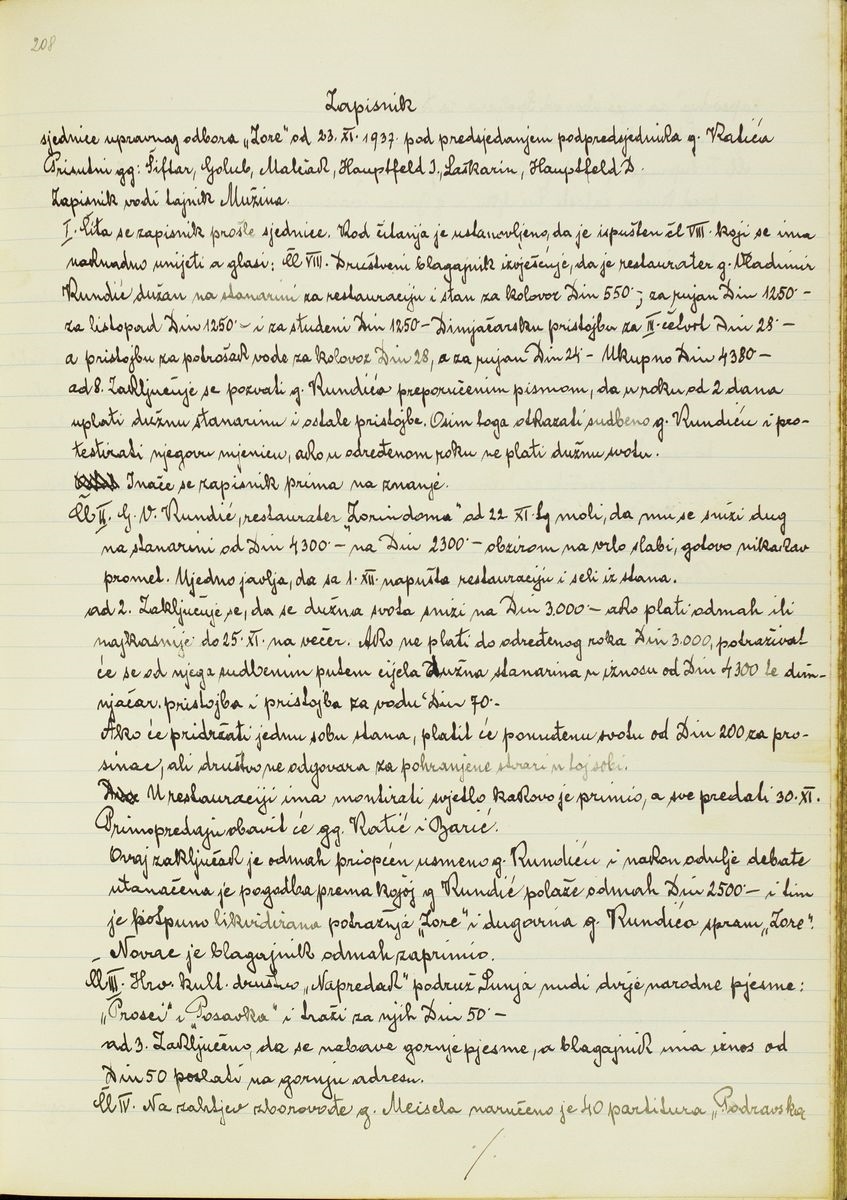 208
Zapisnik
sjednice upravnog odbora „Zore" od 23. XI. 1937. pod predsjedanjem podpredsjednika g. Katića
Prisutni gg: Šiftar, Golub, Malčák, Hauptfeld I., Laskarin, Hauptfeld D.
Zapisnik vodi tajnik Mužina.
I. Čita se zapisnik prošle sjednice. Kod čitanja je ustanovljeno, da je ispušten čl VIII. koji se ima
naknadno unijeti a glasi: Čl VIII. Društveni blagajnik izvješćuje, da je restaurater g. Vladimir
Kundić dužan na stanarini za restauraciju i stan za kolovoz Din 550·-; za rujan Din 1250·-
za listopad Din 1250·- i za studeni Din 1250·- Dimjačarsku pristojbu za IV. četvrt Din 28·-
a pristojbu za potrošak vode za kolovoz Din 28, a za rujan Din 24·- Ukupno Din 4380·-
ad 8. Zaključuje se pozvati g. Kundića preporučenim pismom, da u roku od 2 dana
uplati dužnu stanarinu i ostale pristojbe. Osim toga otkazati sudbeno g. Kundiću i pro-
testirati njegovu mjenicu, ako u određenom roku ne plati dužnu svotu.
Inače se zapisnik prima na znanje.
Čl II. G. V. Kundić, restaurater „Zorin doma" od 22 XI. tg moli, da mu se snizi dug
na stanarini od Din 4300·- na Din 2300·- obzirom na vrlo slabi, gotovo nikakav
promet. Ujedno javlja, da sa 1. XII. napušta restauraciju i seli iz stana.
ad 2. Zaključuje se, da se dužna svota snizi na Din 3.000·- ako plati odmah ili
najkasnije do 25. XI. na večer. Ako ne plati do određenog roka Din 3.000, potraživat
će se od njega sudbenim putem cijela dužna stanarina u iznosu od Din 4300 te dim-
njačar. pristojba i pristojba za vodu Din 70·-
Ako će pridržati jednu sobu stana, platit će ponuđenu svotu od Din 200 za pro-
sinac, ali društvo ne odgovara za pohranjene stvari u toj sobi.
U restauraciji ima montirati svjetlo kakovo je primio, a sve predati 30. XI.
Primopredaju obavit će gg. Katić i Barić.
Ovaj zaključak je odmah priopćen usmeno g. Kundiću i nakon odulje debate
utanačena je pogodba prema kojoj g Kundić polaže odmah Din 2500·- i tim
je potpuno likvidirana potražnja „Zore" i dugovna g. Kundića spram „Zore".
Novac je blagajnik odmah zaprimio.
Čl III. Hrv. kult. društvo „Napredak" podruž. Sunja nudi dvije narodne pjesme:
„Prosci" i „Posavka" i traži za njih Din 50·-
ad 3. Zaključeno, da se nabave gornje pjesme, a blagajnik ima iznos od
Din 50 poslati na gornju adresu.
Čl IV. Na zahtjev zborovođe g. Meisela naručeno je 40 partitura „Podravska
·/.